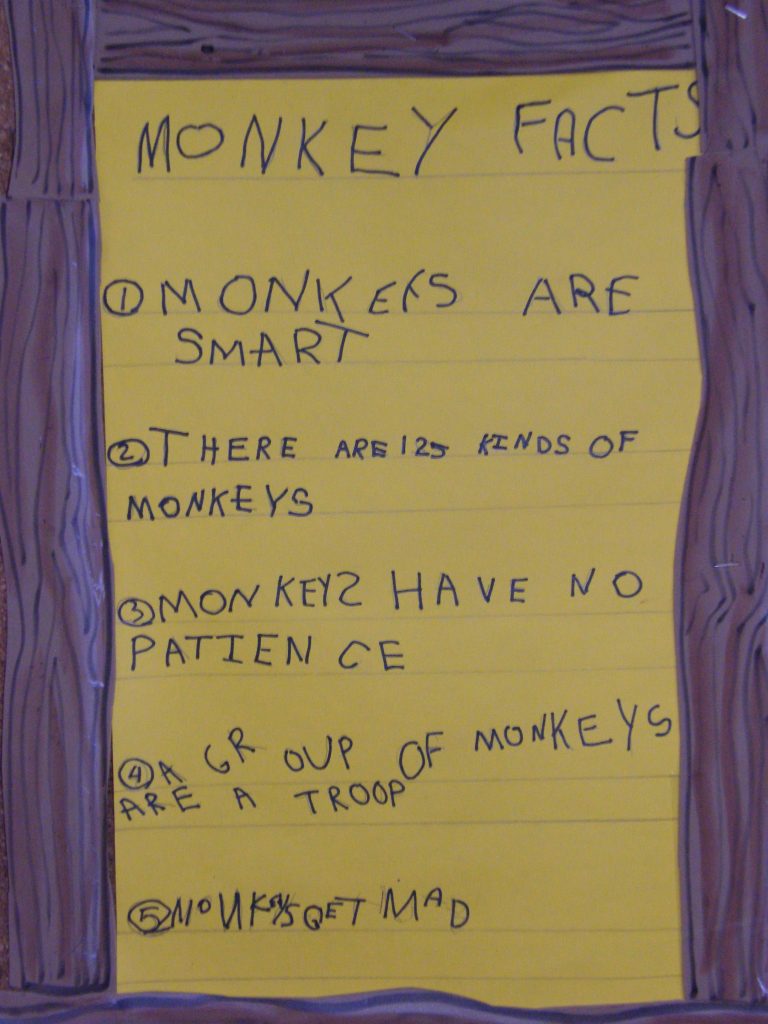 MONKEY FACTS
① MONKEYS ARE
SMART
② THERE ARE 125 KINDS OF
MONKEYS
③ MONKEYS HAVE NO
PATIENCE
④ A GROUP OF MONKEYS
ARE A TROOP
⑤ MONKEYS GET MAD